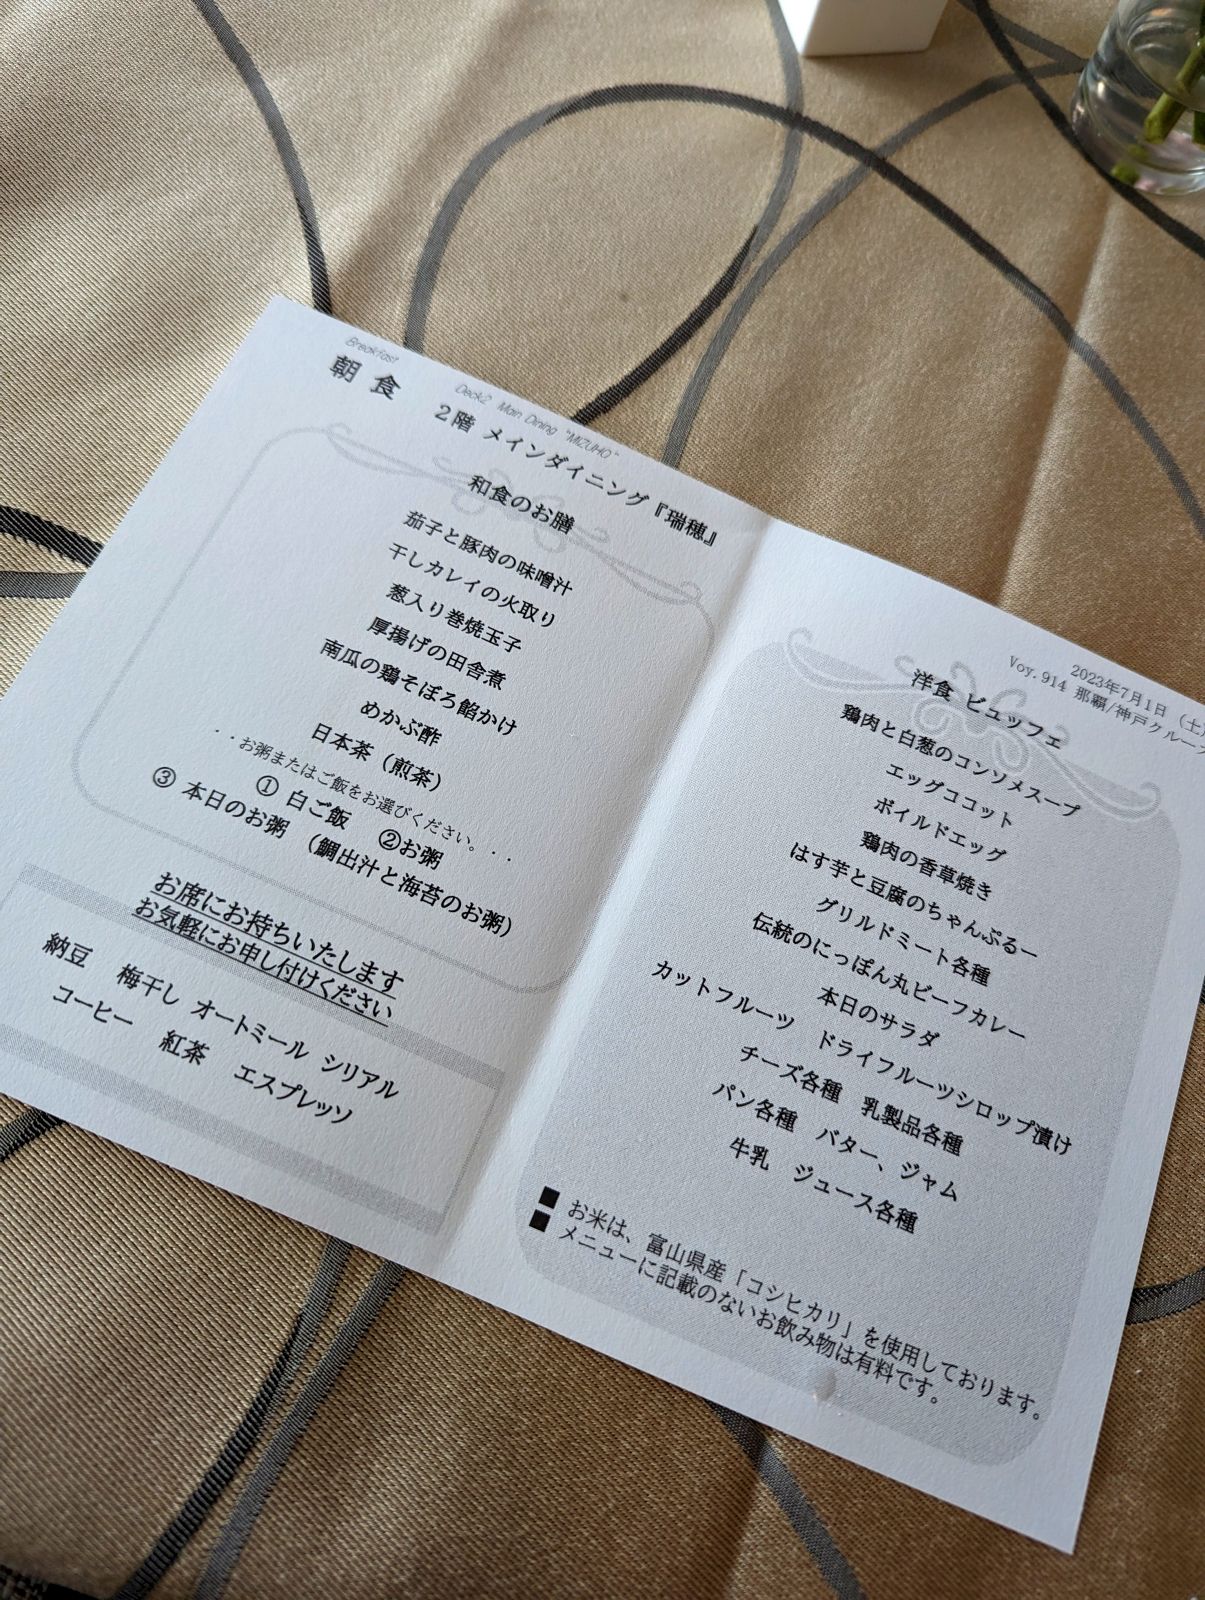 Breakfast
朝 食
Deck2 Main Dining "MIZUHO"
2階 メインダイニング『瑞穂』
和食のお膳
茄子と豚肉の味噌汁
干しカレイの火取り
葱入り巻焼玉子
厚揚げの田舎煮
南瓜の鶏そぼろ餡かけ
めかぶ酢
日本茶（煎茶）
・・お粥またはご飯をお選びください。・・
① 白ご飯 ②お粥
③ 本日のお粥 （鯛出汁と海苔のお粥）
お席にお持ちいたします
お気軽にお申し付けください
納豆 梅干し オートミール シリアル
コーヒー 紅茶 エスプレッソ
2023年7月1日（土
Voy.914 那覇/神戸クルー
洋食 ビュッフェ
鶏肉と白葱のコンソメスープ
エッグココット
ボイルドエッグ
鶏肉の香草焼き
はす芋と豆腐のちゃんぷるー
グリルドミート各種
伝統のにっぽん丸ビーフカレー
本日のサラダ
カットフルーツ ドライフルーツシロップ漬け
チーズ各種 乳製品各種
パン各種 バター、ジャム
牛乳 ジュース各種
■ お米は、富山県産「コシヒカリ」を使用しております。
■ メニューに記載のないお飲み物は有料です。